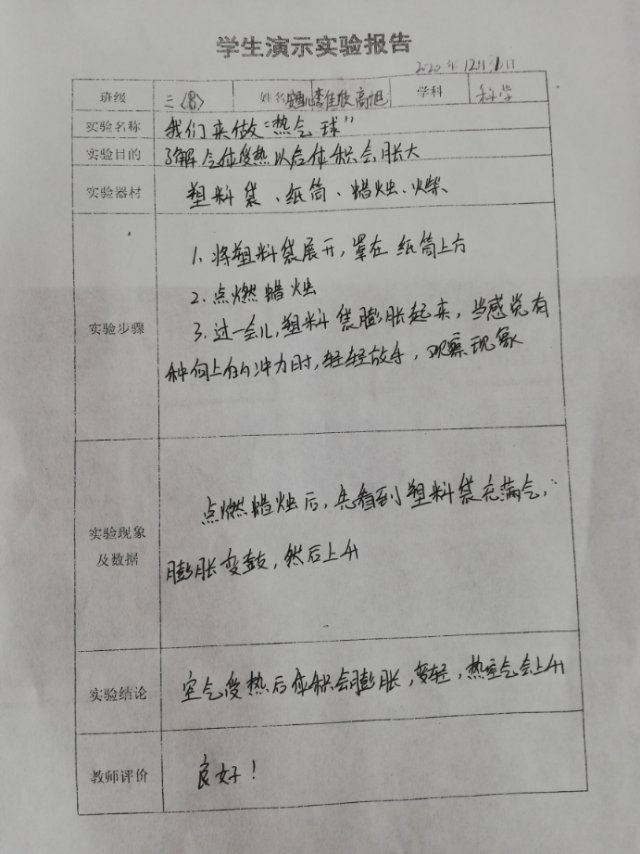 学生演示实验报告
2020年12月 日
班级 三〈8〉 姓名 李佳欣 高旭 学科 科学
实验名称 我们来做“热气球”
实验目的 了解气体受热以后体积会胀大
实验器材 塑料袋、纸筒、蜡烛、火柴、
实验步骤
1. 将塑料袋展开，罩在纸筒上方
2. 点燃蜡烛
3. 过一会儿，塑料袋膨胀起来，当感觉有
种向上的冲力时，轻轻放手，观察现象
实验现象
及数据
点燃蜡烛后，先看到塑料袋充满气，
膨胀变鼓，然后上升
实验结论 空气受热后体积会膨胀，变轻，热空气会上升
教师评价 良好！